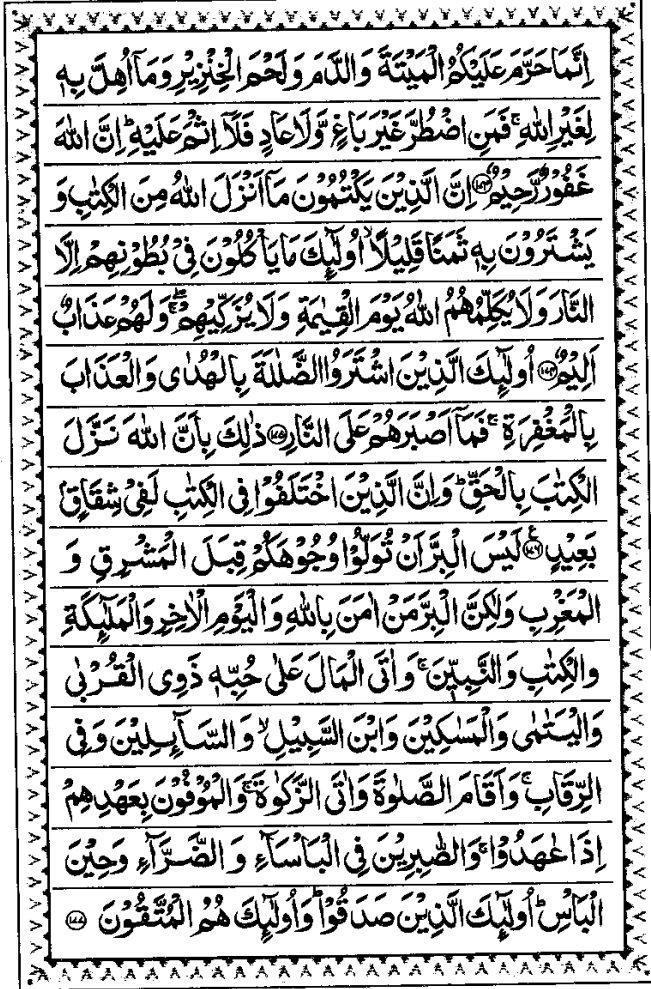 اِنَّمَا حَرَّمَ عَلَيْكُمُ الْمَيْتَةَ وَالدَّمَ وَلَحْمَ الْخِنْزِيْرِ وَمَآ اُهِلَّ بِهٖ
لِغَيْرِ اللّٰهِ ۚ فَمَنِ اضْطُرَّ غَيْرَ بَاغٍ وَّلَا عَادٍ فَلَآ اِثْمَ عَلَيْهِ ؕ اِنَّ اللّٰهَ
غَفُوْرٌ رَّحِيْمٌ ﴿۱۷۳﴾ اِنَّ الَّذِيْنَ يَكْتُمُوْنَ مَآ اَنْزَلَ اللّٰهُ مِنَ الْكِتٰبِ وَ
يَشْتَرُوْنَ بِهٖ ثَمَنًا قَلِيْلًا ۙ اُولٰٓئِكَ مَا يَاْكُلُوْنَ فِيْ بُطُوْنِهِمْ اِلَّا
النَّارَ وَلَا يُكَلِّمُهُمُ اللّٰهُ يَوْمَ الْقِيٰمَةِ وَلَا يُزَكِّيْهِمْ ۖۚ وَلَهُمْ عَذَابٌ
اَلِيْمٌ ﴿۱۷۴﴾ اُولٰٓئِكَ الَّذِيْنَ اشْتَرَوُا الضَّلٰلَةَ بِالْهُدٰى وَالْعَذَابَ
بِالْمَغْفِرَةِ ۚ فَمَآ اَصْبَرَهُمْ عَلَى النَّارِ ﴿۱۷۵﴾ ذٰلِكَ بِاَنَّ اللّٰهَ نَزَّلَ
الْكِتٰبَ بِالْحَقِّ ؕ وَاِنَّ الَّذِيْنَ اخْتَلَفُوْا فِي الْكِتٰبِ لَفِيْ شِقَاقٍۭ
بَعِيْدٍ ﴿۱۷۶﴾ ع لَيْسَ الْبِرَّ اَنْ تُوَلُّوْا وُجُوْهَكُمْ قِبَلَ الْمَشْرِقِ وَ
الْمَغْرِبِ وَلٰكِنَّ الْبِرَّ مَنْ اٰمَنَ بِاللّٰهِ وَالْيَوْمِ الْاٰخِرِ وَالْمَلٰٓئِكَةِ
وَالْكِتٰبِ وَالنَّبِيّٖنَ ۚ وَاٰتَى الْمَالَ عَلٰى حُبِّهٖ ذَوِي الْقُرْبٰى
وَالْيَتٰمٰى وَالْمَسٰكِيْنَ وَابْنَ السَّبِيْلِ ۙ وَالسَّآئِلِيْنَ وَفِي
الرِّقَابِ ۚ وَاَقَامَ الصَّلٰوةَ وَاٰتَى الزَّكٰوةَ ۚ وَالْمُوْفُوْنَ بِعَهْدِهِمْ
اِذَا عٰهَدُوْا ۚ وَالصّٰبِرِيْنَ فِي الْبَاْسَآءِ وَالضَّرَّآءِ وَحِيْنَ
الْبَاْسِ ؕ اُولٰٓئِكَ الَّذِيْنَ صَدَقُوْا ؕ وَاُولٰٓئِكَ هُمُ الْمُتَّقُوْنَ ﴿۱۷۷﴾